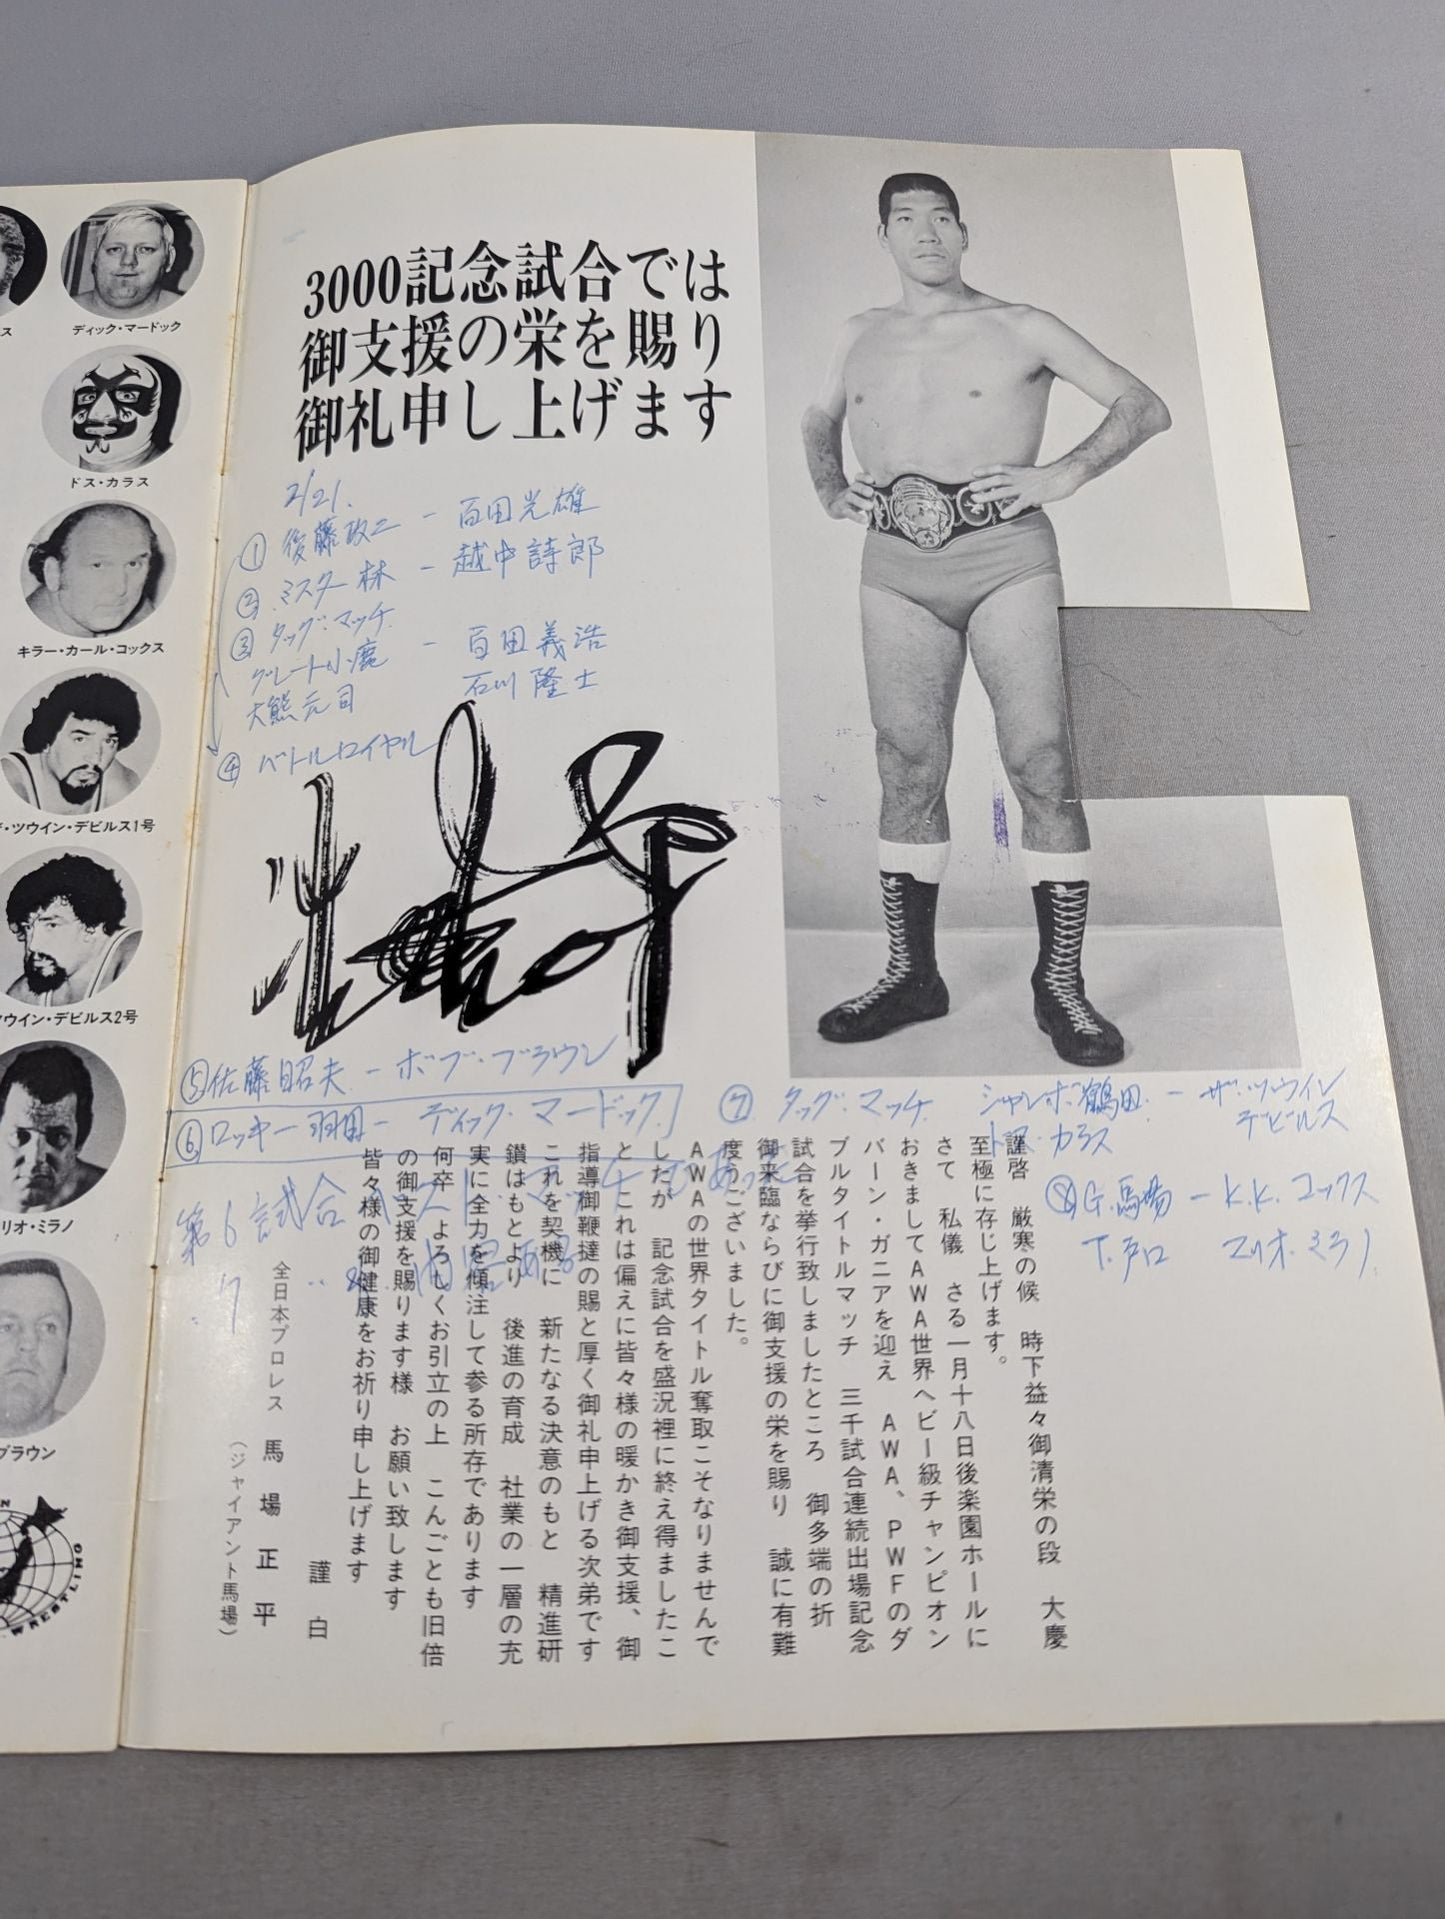 ス
ディック・マードック
ドス・カラス
キラー・カール・コックス
ザ・ツウイン・デビルス1号
ツウイン・デビルス2号
リオ・ミラノ
ブラウン
WRESTLING
3000記念試合では
御支援の栄を賜り
御礼申し上げます
2/21.
① 後藤政二 - 百田光雄
② ミスター林 - 越中詩郎
③ タッグ・マッチ
グレート小鹿 - 百田義浩
大熊元司 石川隆士
④ バトルロイヤル
⑤ 佐藤昭夫 - ボブ・ブラウン
⑥ ロッキー羽田 - ディック・マードック
⑦ タッグ・マッチ ジャンボ鶴田 - ザ・ツウイン
ドス・カラス デビルス
⑧ G.馬場 - K.K.コックス
T.戸口 マリオ・ミラノ
第6試合
謹啓 厳寒の候 時下益々御清栄の段 大慶
至極に存じ上げます。
さて 私儀 さる一月十八日後楽園ホールに
おきましてAWA世界ヘビー級チャンピオン
バーン・ガニアを迎え AWA、PWFのダ
ブルタイトルマッチ 三千試合連続出場記念
試合を挙行致しましたところ 御多端の折
御来臨ならびに御支援の栄を賜り 誠に有難
度うございました。
AWAの世界タイトル奪取こそなりませんで
したが 記念試合を盛況裡に終え得ましたこ
と これは偏えに皆々様の暖かき御支援、御
指導御鞭撻の賜と厚く御礼申上げる次第です
これを契機に 新たなる決意のもと 精進研
鑚はもとより 後進の育成 社業の一層の充
実に全力を傾注して参る所存であります
何卒 よろしくお引立の上 こんごとも旧倍
の御支援を賜ります様 お願い致します
皆々様の御健康をお祈り申し上げます
謹白
全日本プロレス 馬場正平
(ジャイアント馬場)